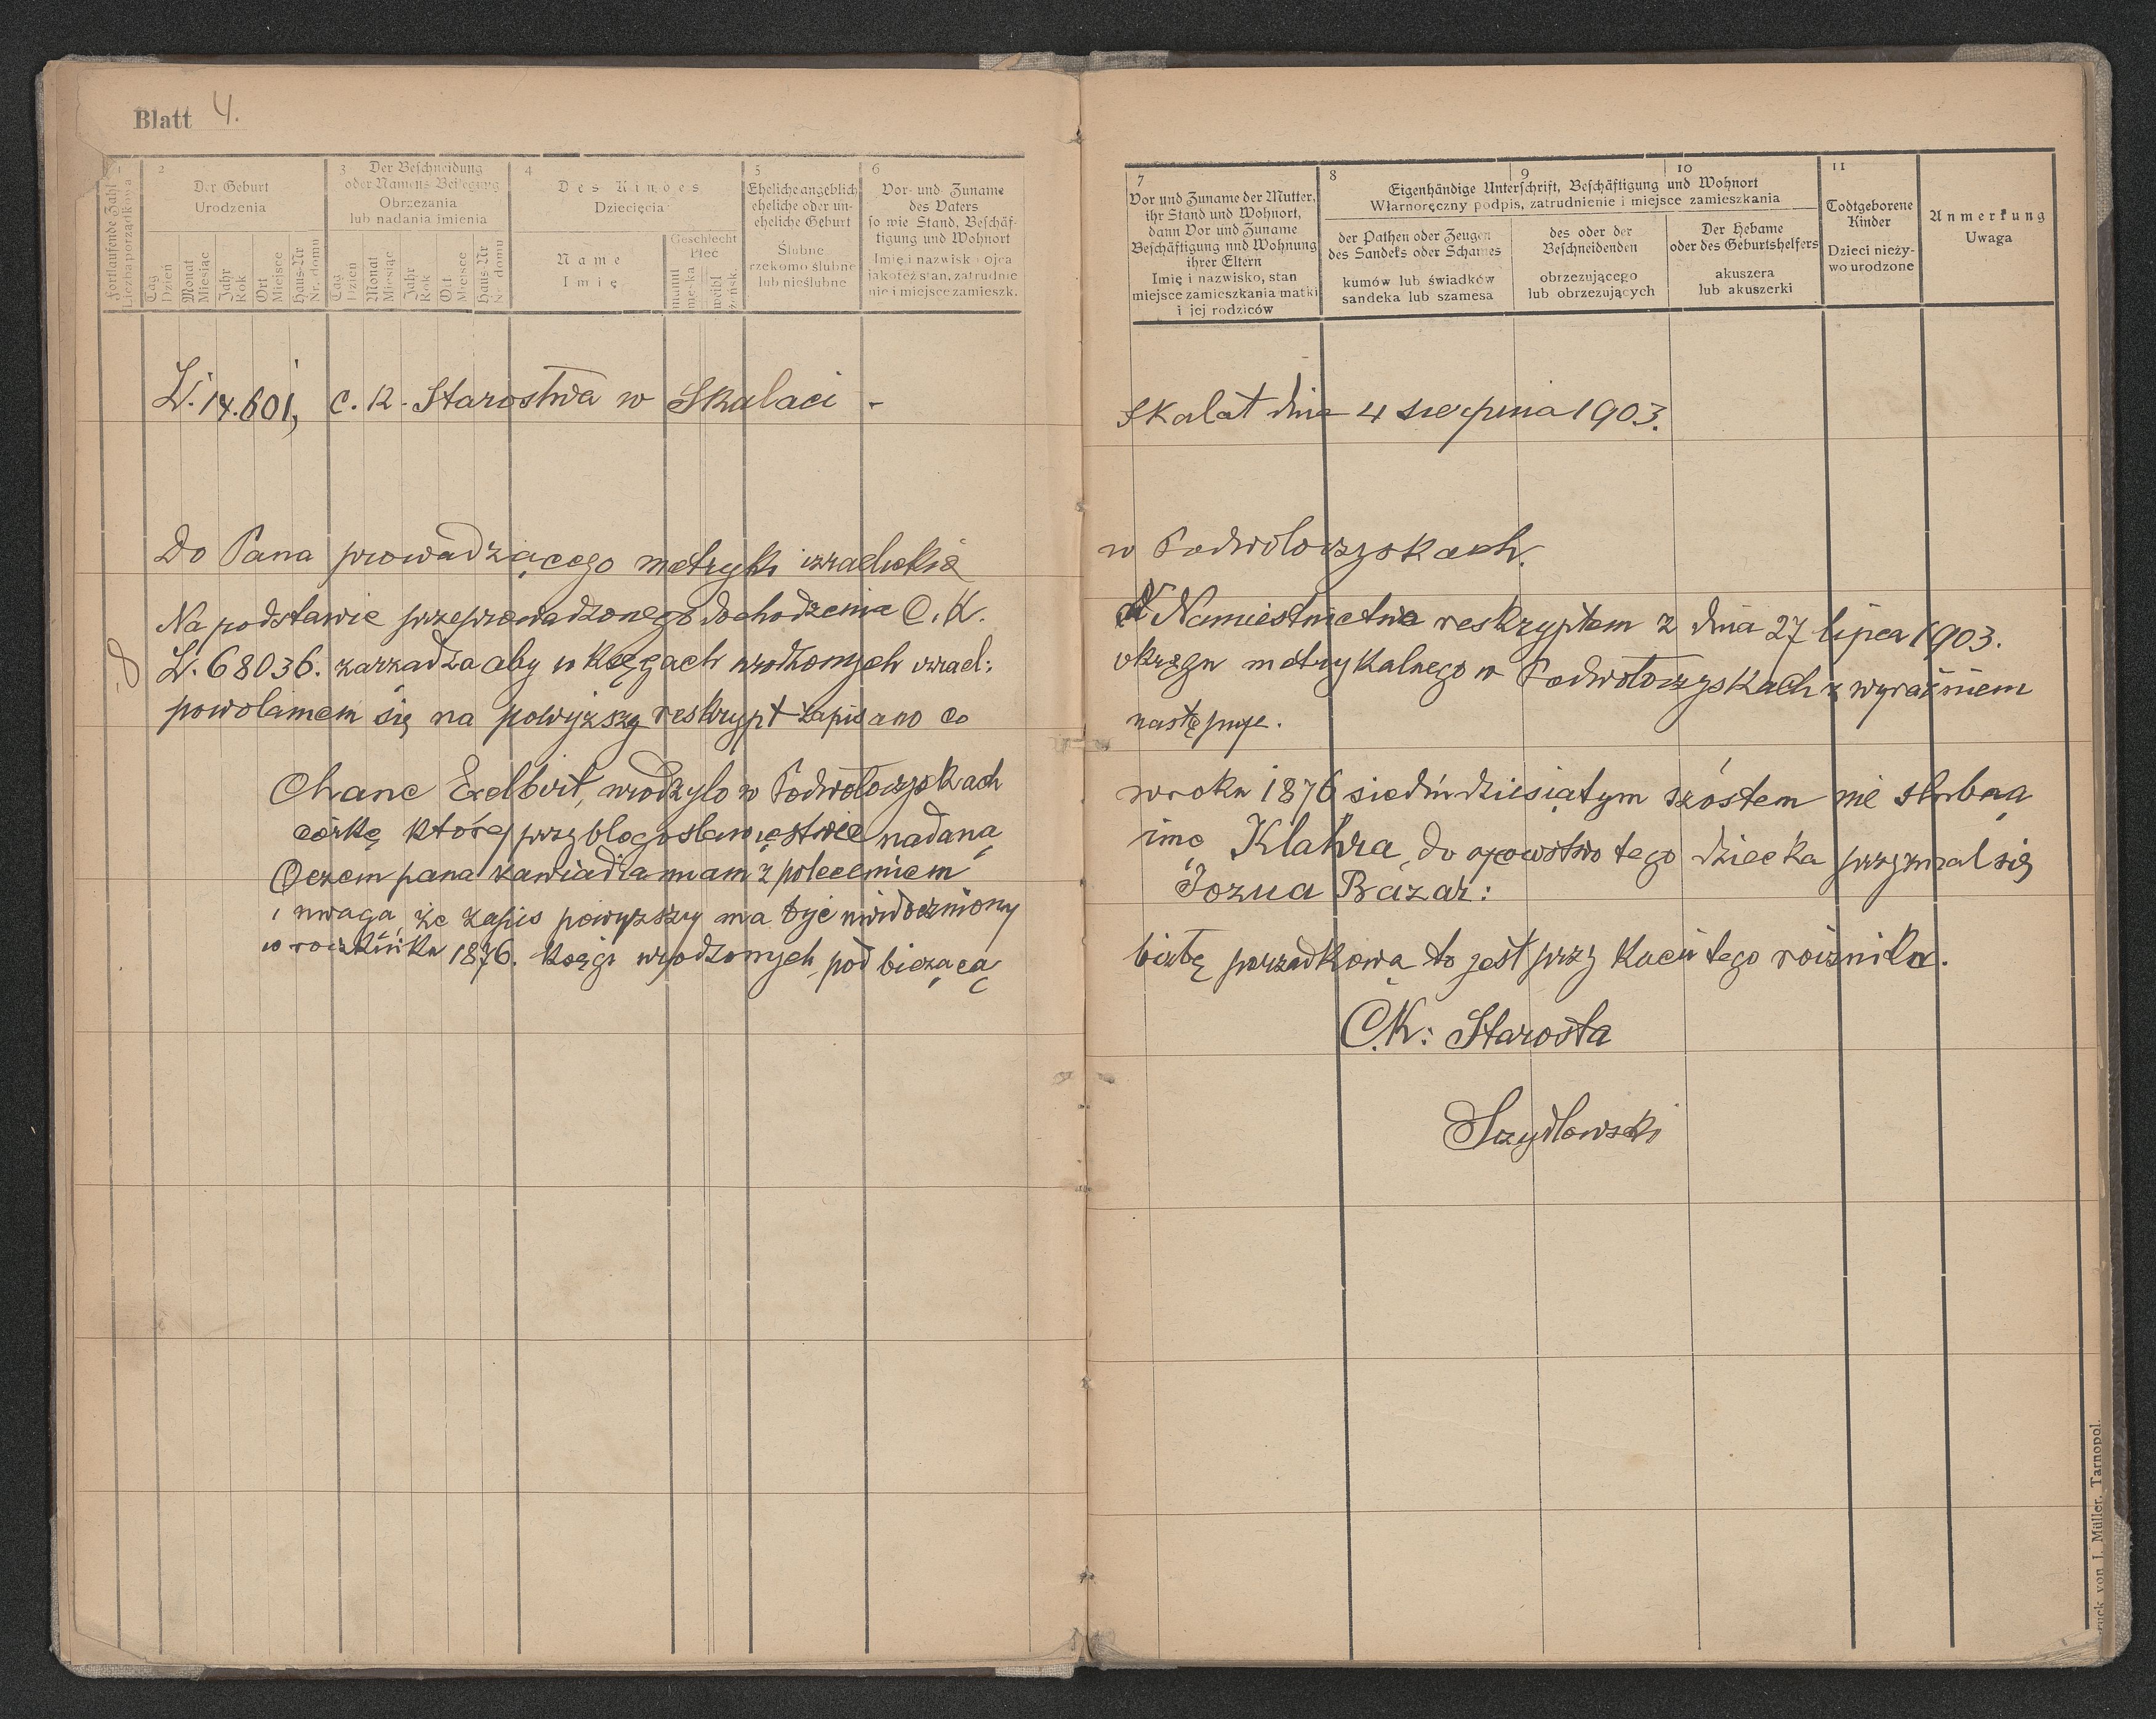 Blatt 4.
1
Fortlaufende Zahl
Liczba porządkowa
2
Der Geburt
Urodzenia
Tag
Dzień
Monat
Miesiąc
Jahr
Rok
Ort
Miejsce
Haus-Nr
Nr. domu
3
Der Beschneidung
oder Namens Beilegung
Obrzezania
lub nadania imienia
Tag
Dzien
Monat
Miesiąc
Jahr
Rok
Ort
Miejsce
Haus-Nr
Nr. domu
4
Des Kindes
Dziecięcia
Name
Imię
Geschlecht
Płeć
männl
męska
weibl
żeńsk.
5
Eheliche angeblich
eheliche oder un-
eheliche Geburt
Ślubne
rzekomo ślubne
lub nieślubne
6
Vor- und Zuname
des Vaters
so wie Stand, Beschäf-
tigung und Wohnort
Imię i nazwisko ojca
jakoteż stan, zatrudnie
nie i miejsce zamieszk.
7
Vor und Zuname der Mutter,
ihr Stand und Wohnort,
dann Vor und Zuname
Beschäftigung und Wohnung
ihrer Eltern
Imię i nazwisko, stan
miejsce zamieszkania matki
i jej rodziców
8 9 10
Eigenhändige Unterschrift, Beschäftigung und Wohnort
Własnoręczny podpis, zatrudnienie i miejsce zamieszkania
der Pathen oder Zeugen
des Sandeks oder Schames
kumów lub świadków
sandeka lub szamesa
des oder der
Beschneidenden
obrzezującego
lub obrzezujących
Der Hebame
oder des Geburtshelfers
akuszera
lub akuszerki
11
Todtgeborene
Kinder
Dzieci nieży-
wo urodzone
Anmerkung
Uwaga
L. 14.601, c. k. Starostwa w Skalaci - Skalat dnia 4 sierpnia 1903.
Do Pana prowadzącego metryki izraelickie w Podwołoczyskach.
Na podstawie przeprowadzonego dochodzenia C. K. Namiestnictwo reskryptem z dnia 27 lipca 1903.
L. 68036. zarzadza aby w księgach urodzonych izrael: okręgu metrykalnego w Podwołoczyskach z wyraźniem
powołaniem się na powyższy reskrypt zapisano co następuje.
Chane Exelbirt, urodzyło w Podwołoczyskach w roku 1876 siedmdziesiątym szóstem nie ślubną
córkę której przy błogosławieństwie nadaną imę Klahra, do ojcowstwo tego dziecka przyznał się
Jozua Bazar:
Oczem pana zawiadiamam z poleceniem
i uwagą, że zapis powyższy ma być uwidoczniony
w roczniku 1876. księgi urodzonych pod bieżącą liczbę porzadkową to jest przy końcu tego rocznika.
C. K: Starosta
Szydłowski
Druck von J. Müller, Tarnopol.